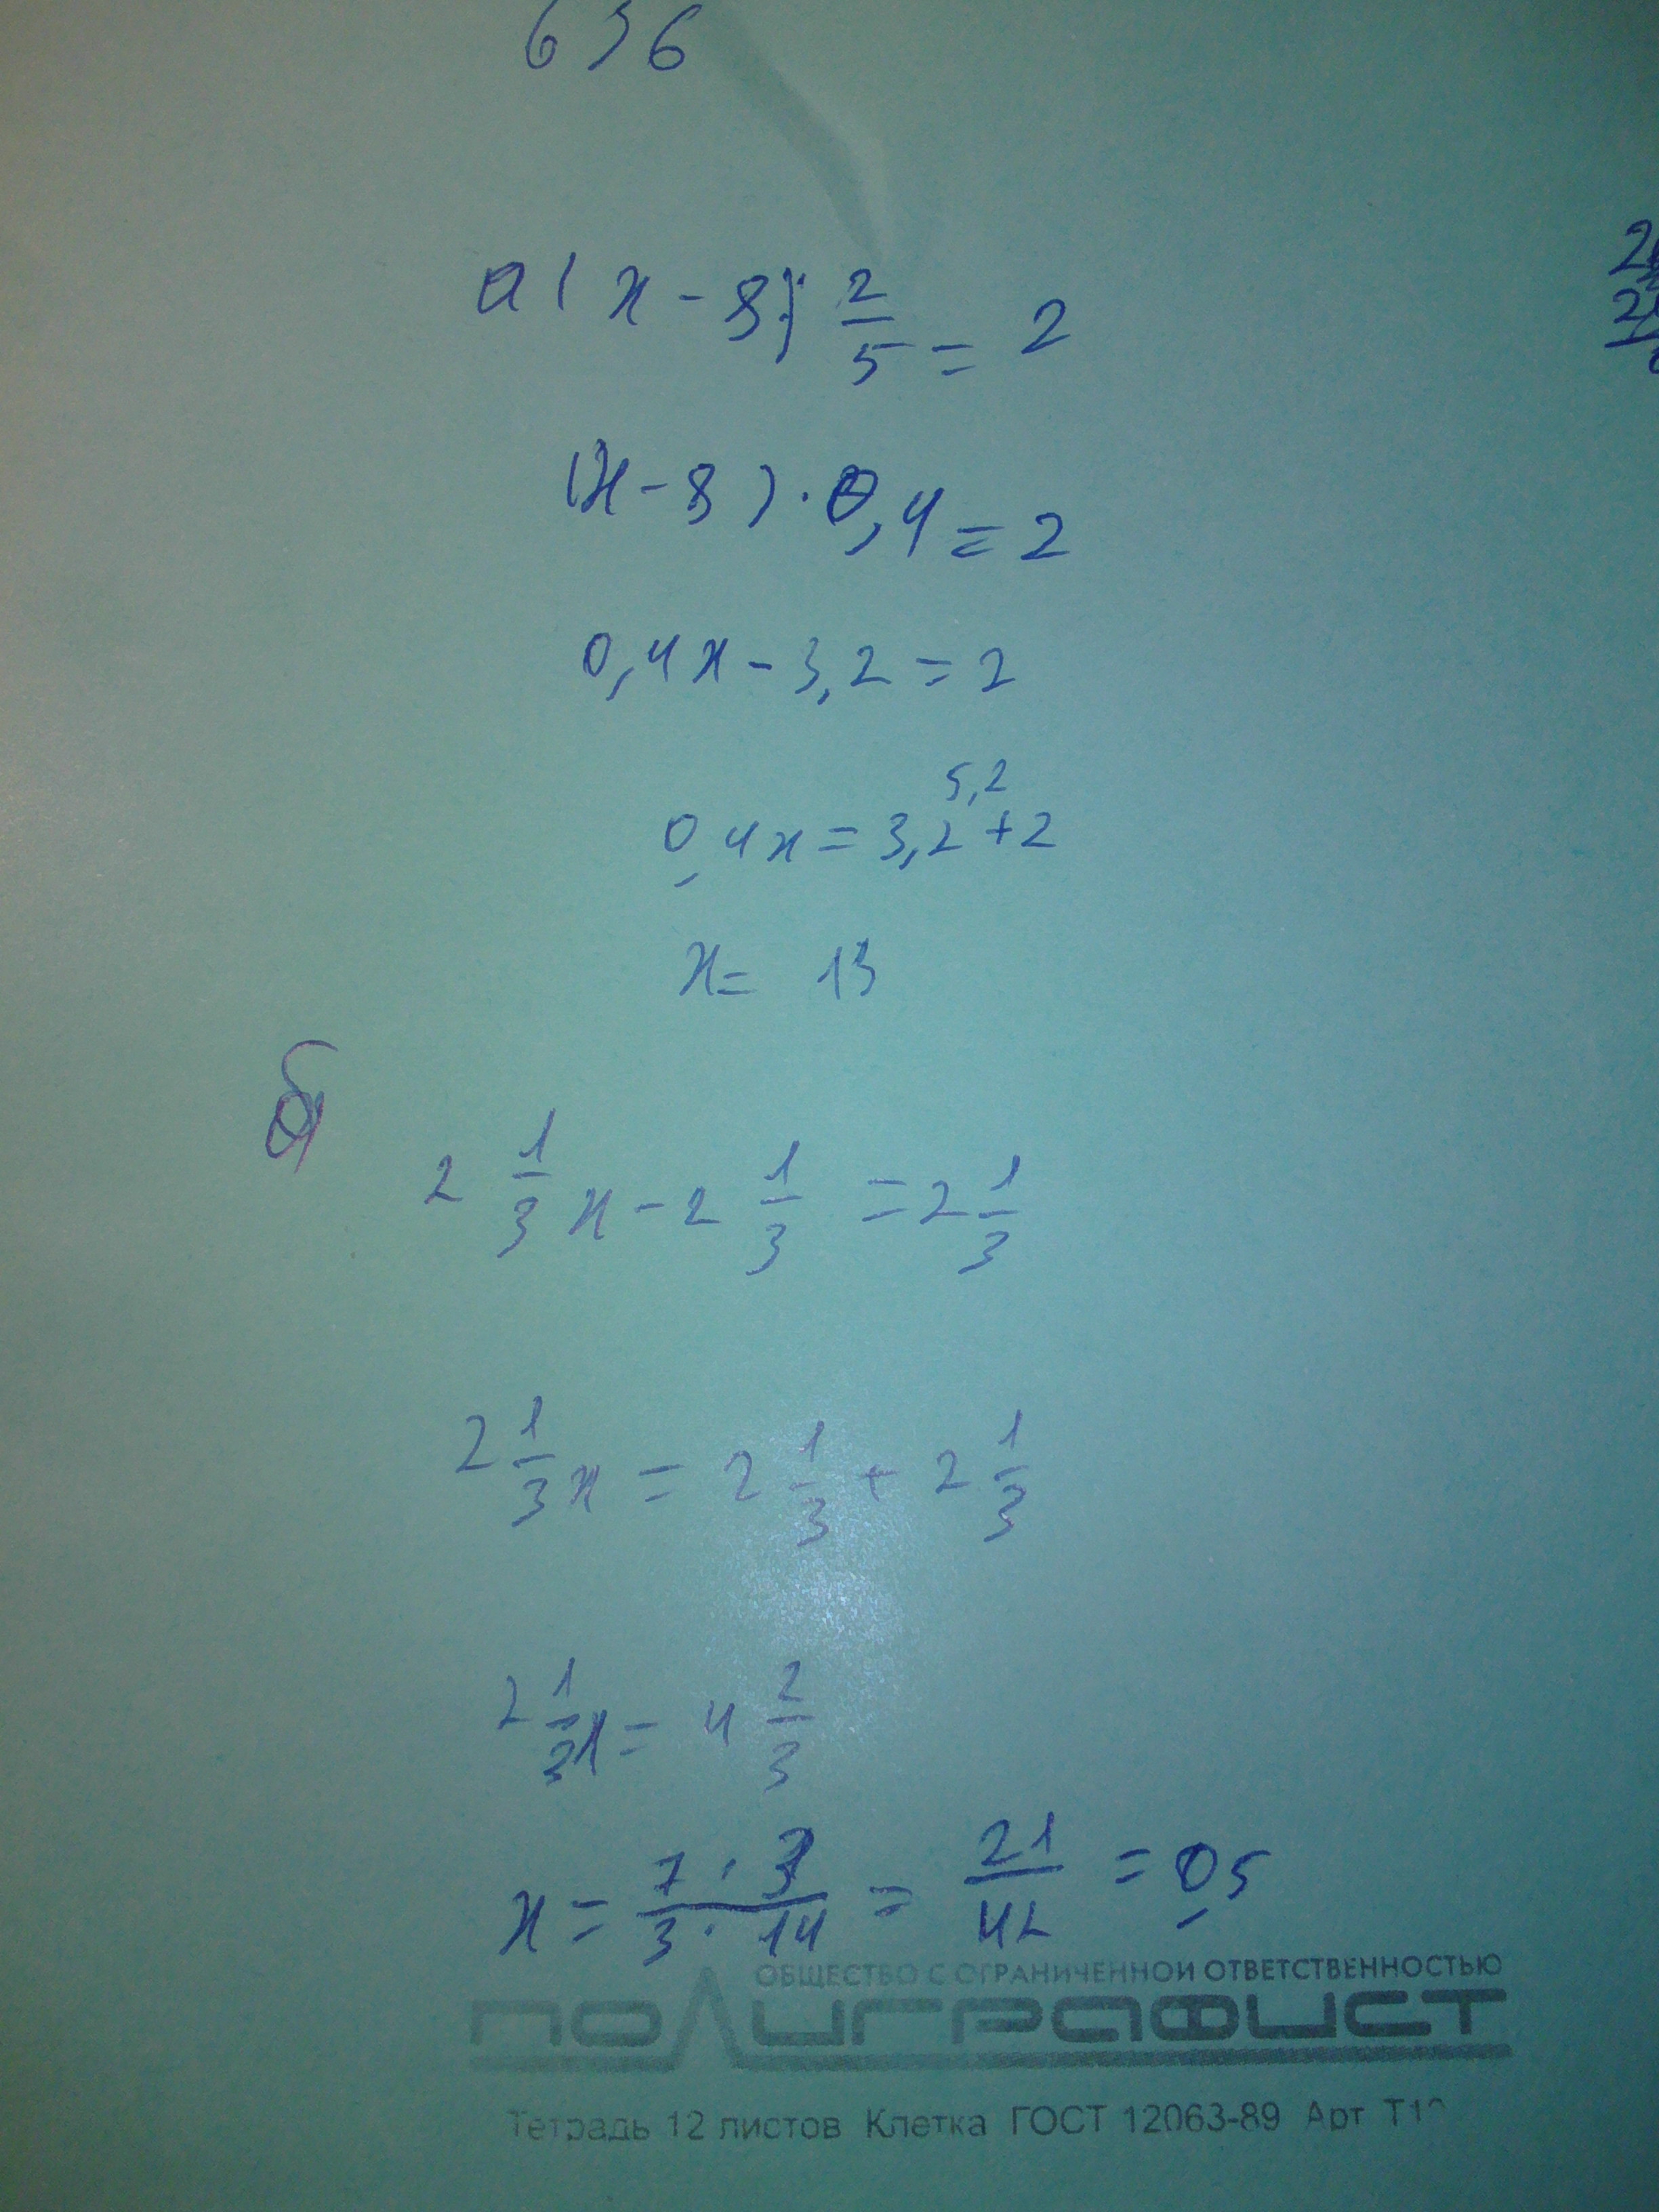 636
а) (x - 8) · 2/5 = 2
(x - 8) · 0,4 = 2
0,4x - 3,2 = 2
5,2
0,4x = 3,2 + 2
x = 13
б)
2 1/3 x - 2 1/3 = 2 1/3
2 1/3 x = 2 1/3 + 2 1/3
2 1/3 x = 4 2/3
x = 7 · 3 / 3 · 14 = 21/42 = 0,5
ОБЩЕСТВО С ОГРАНИЧЕННОЙ ОТВЕТСТВЕННОСТЬЮ
ПОЛИГРАФИСТ
Тетрадь 12 листов Клетка ГОСТ 12063-89 Арт